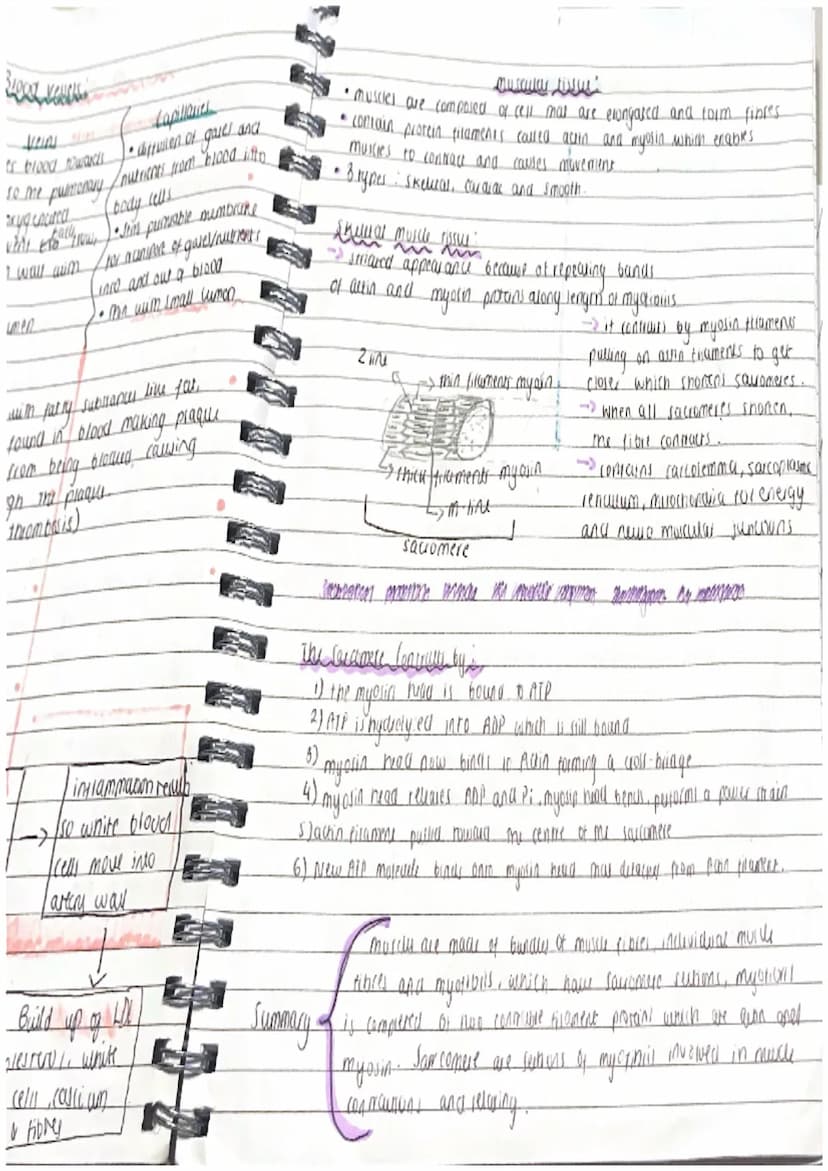 Blood vessels:
veins
blood towards
so the pulmonary
wall with
lumen
capillaries
• diffusion of gases and
nutrients from blood into
body cells
• thin permable membrane
for transport of gases/nutrients
into and out of blood
• thin with small lumen
with fatty substances like fat,
found in blood making plaque
from being blocked, causing
on the plaque.
thrombosis)
inflammation results
so white blood
cells move into
artery wall
Build up of LDL
white
cells, calcium
& fibres
muscular tissue:
• muscles are composed of cell that are elongated and form fibres
• contain protein filaments called actin and myosin which enables
muscles to contract and causes movement
• 3 types: skeletal, cardiac and smooth.
Skeletal muscle tissue:
→ striated appearance because of repeating bands
of actin and myosin protiens along length of myofibrils
→ it contracts by myosin filaments
pulling on actin filaments to get
closer which shortens sacromeres.
→ when all sacromeres shorten,
the fibre contracts.
→ contains sarcolemma, sarcoplasmic
reticulum, mitochondria for energy
and neuro muscular junctions
Z line
→ thin filaments myosin
→ thick filaments myosin
→ m-line
sacromere
The Sacromere Contracts by:
1) the myosin head is bound to ATP
2) ATP is hydrolysed into ADP which is still bound
3) myosin head now binds to Actin forming a cross-bridge
4) myosin head releases ADP and Pi, myosin head bends, performs a power strain
5) actin filament pulled toward the centre of the sarcomere
6) New ATP molecule binds onto myosin head that detaches from Actin filament.
Summary
muscles are made of bundles of muscle fibres, individual muscle
fibres and myofibrils, which have sacromere sections, myofibril
is completed of two contractile filament protiens which are actin and
myosin. Sarcomere are sections of myofibril involved in muscle
contractions and relaxing.